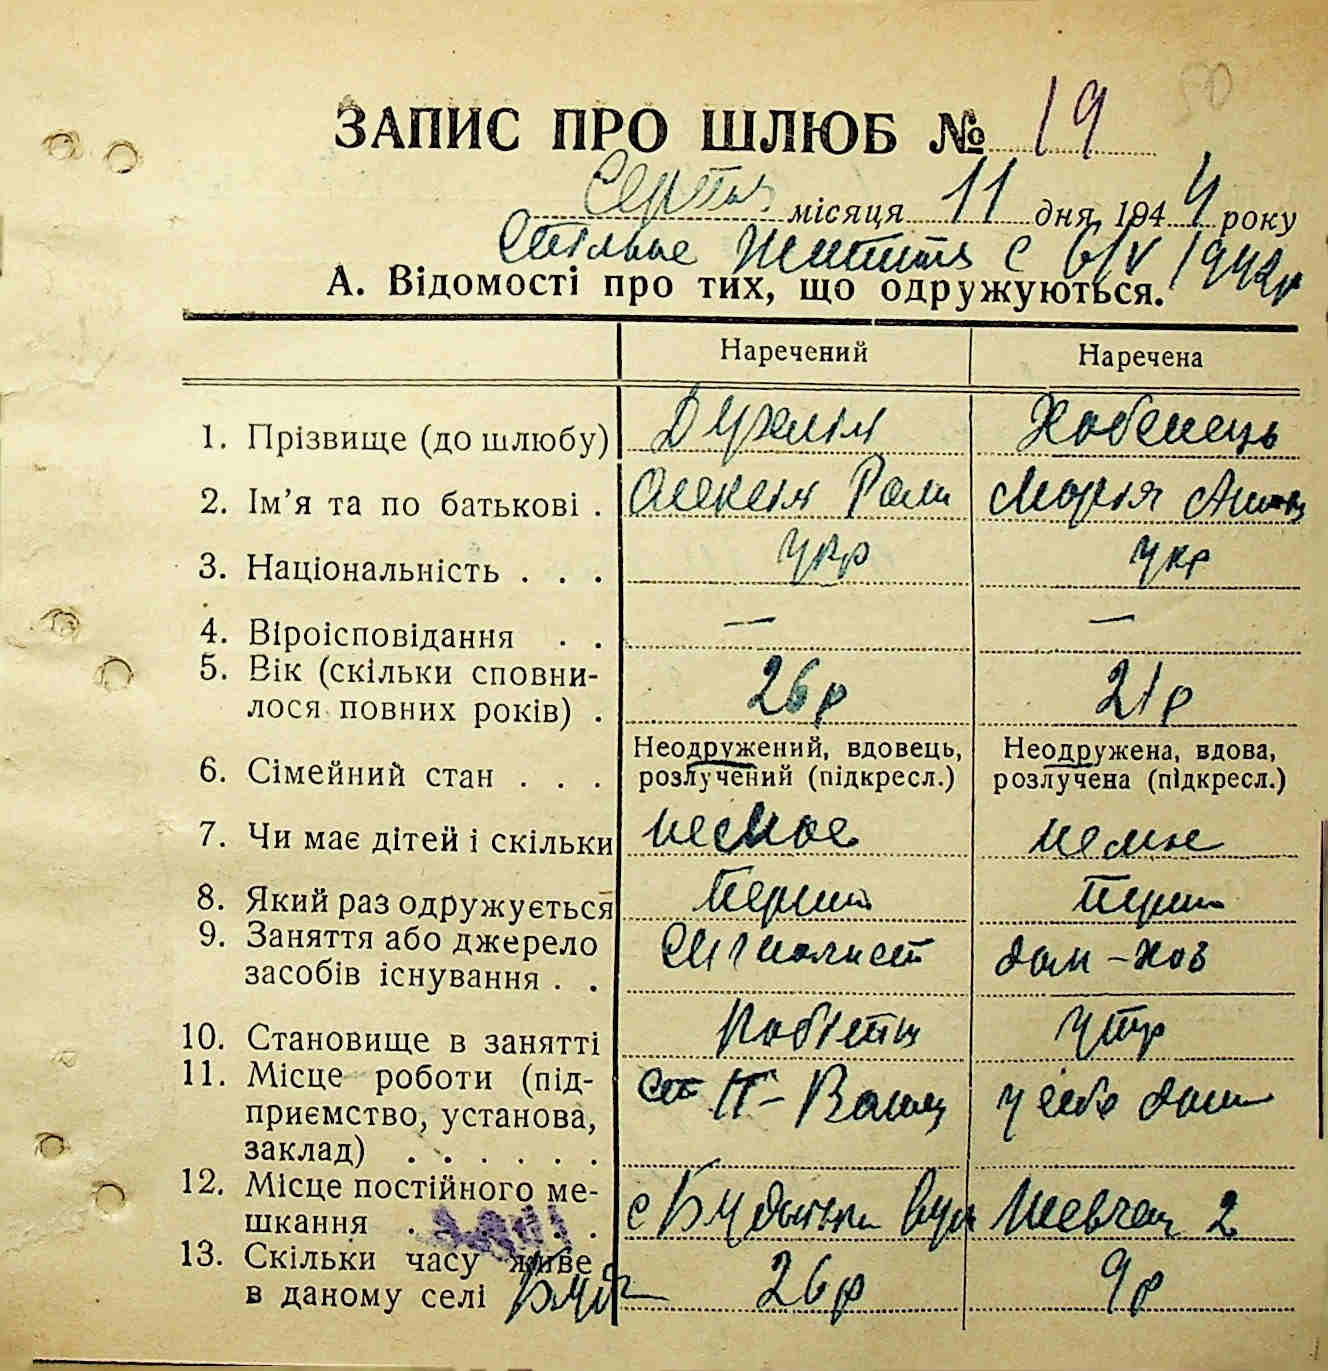 ЗАПИС ПРО ШЛЮБ № 19
Серпня місяця 11 дня 1944 року
Спільне життя с 6/V 1942р
А. Відомості про тих, що одружуються.
Наречений Наречена
1. Прізвище (до шлюбу)
2. Ім'я та по батькові . Олексій Марія
3. Національність . . . укр укр
4. Віроісповідання . . — —
5. Вік (скільки сповни-
лося повних років) . 26р 21р
6. Сімейний стан . . . Неодружений, вдовець, розлучений (підкресл.) Неодружена, вдова, розлучена (підкресл.)
7. Чи має дітей і скільки немає немає
8. Який раз одружується Перший Перший
9. Заняття або джерело
засобів існування . . дом-хоз
10. Становище в занятті Робітн утр
11. Місце роботи (під-
приємство, установа,
заклад) . . . . . . у себе дома
12. Місце постійного ме-
шкання . . . . с Шевчен 2
13. Скільки часу живе
в даному селі 26р 9р